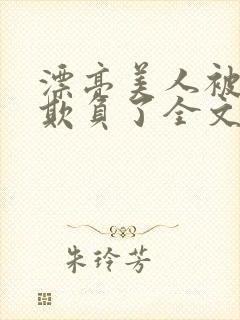 漂亮美人被
欺负了全文
朱玲芳